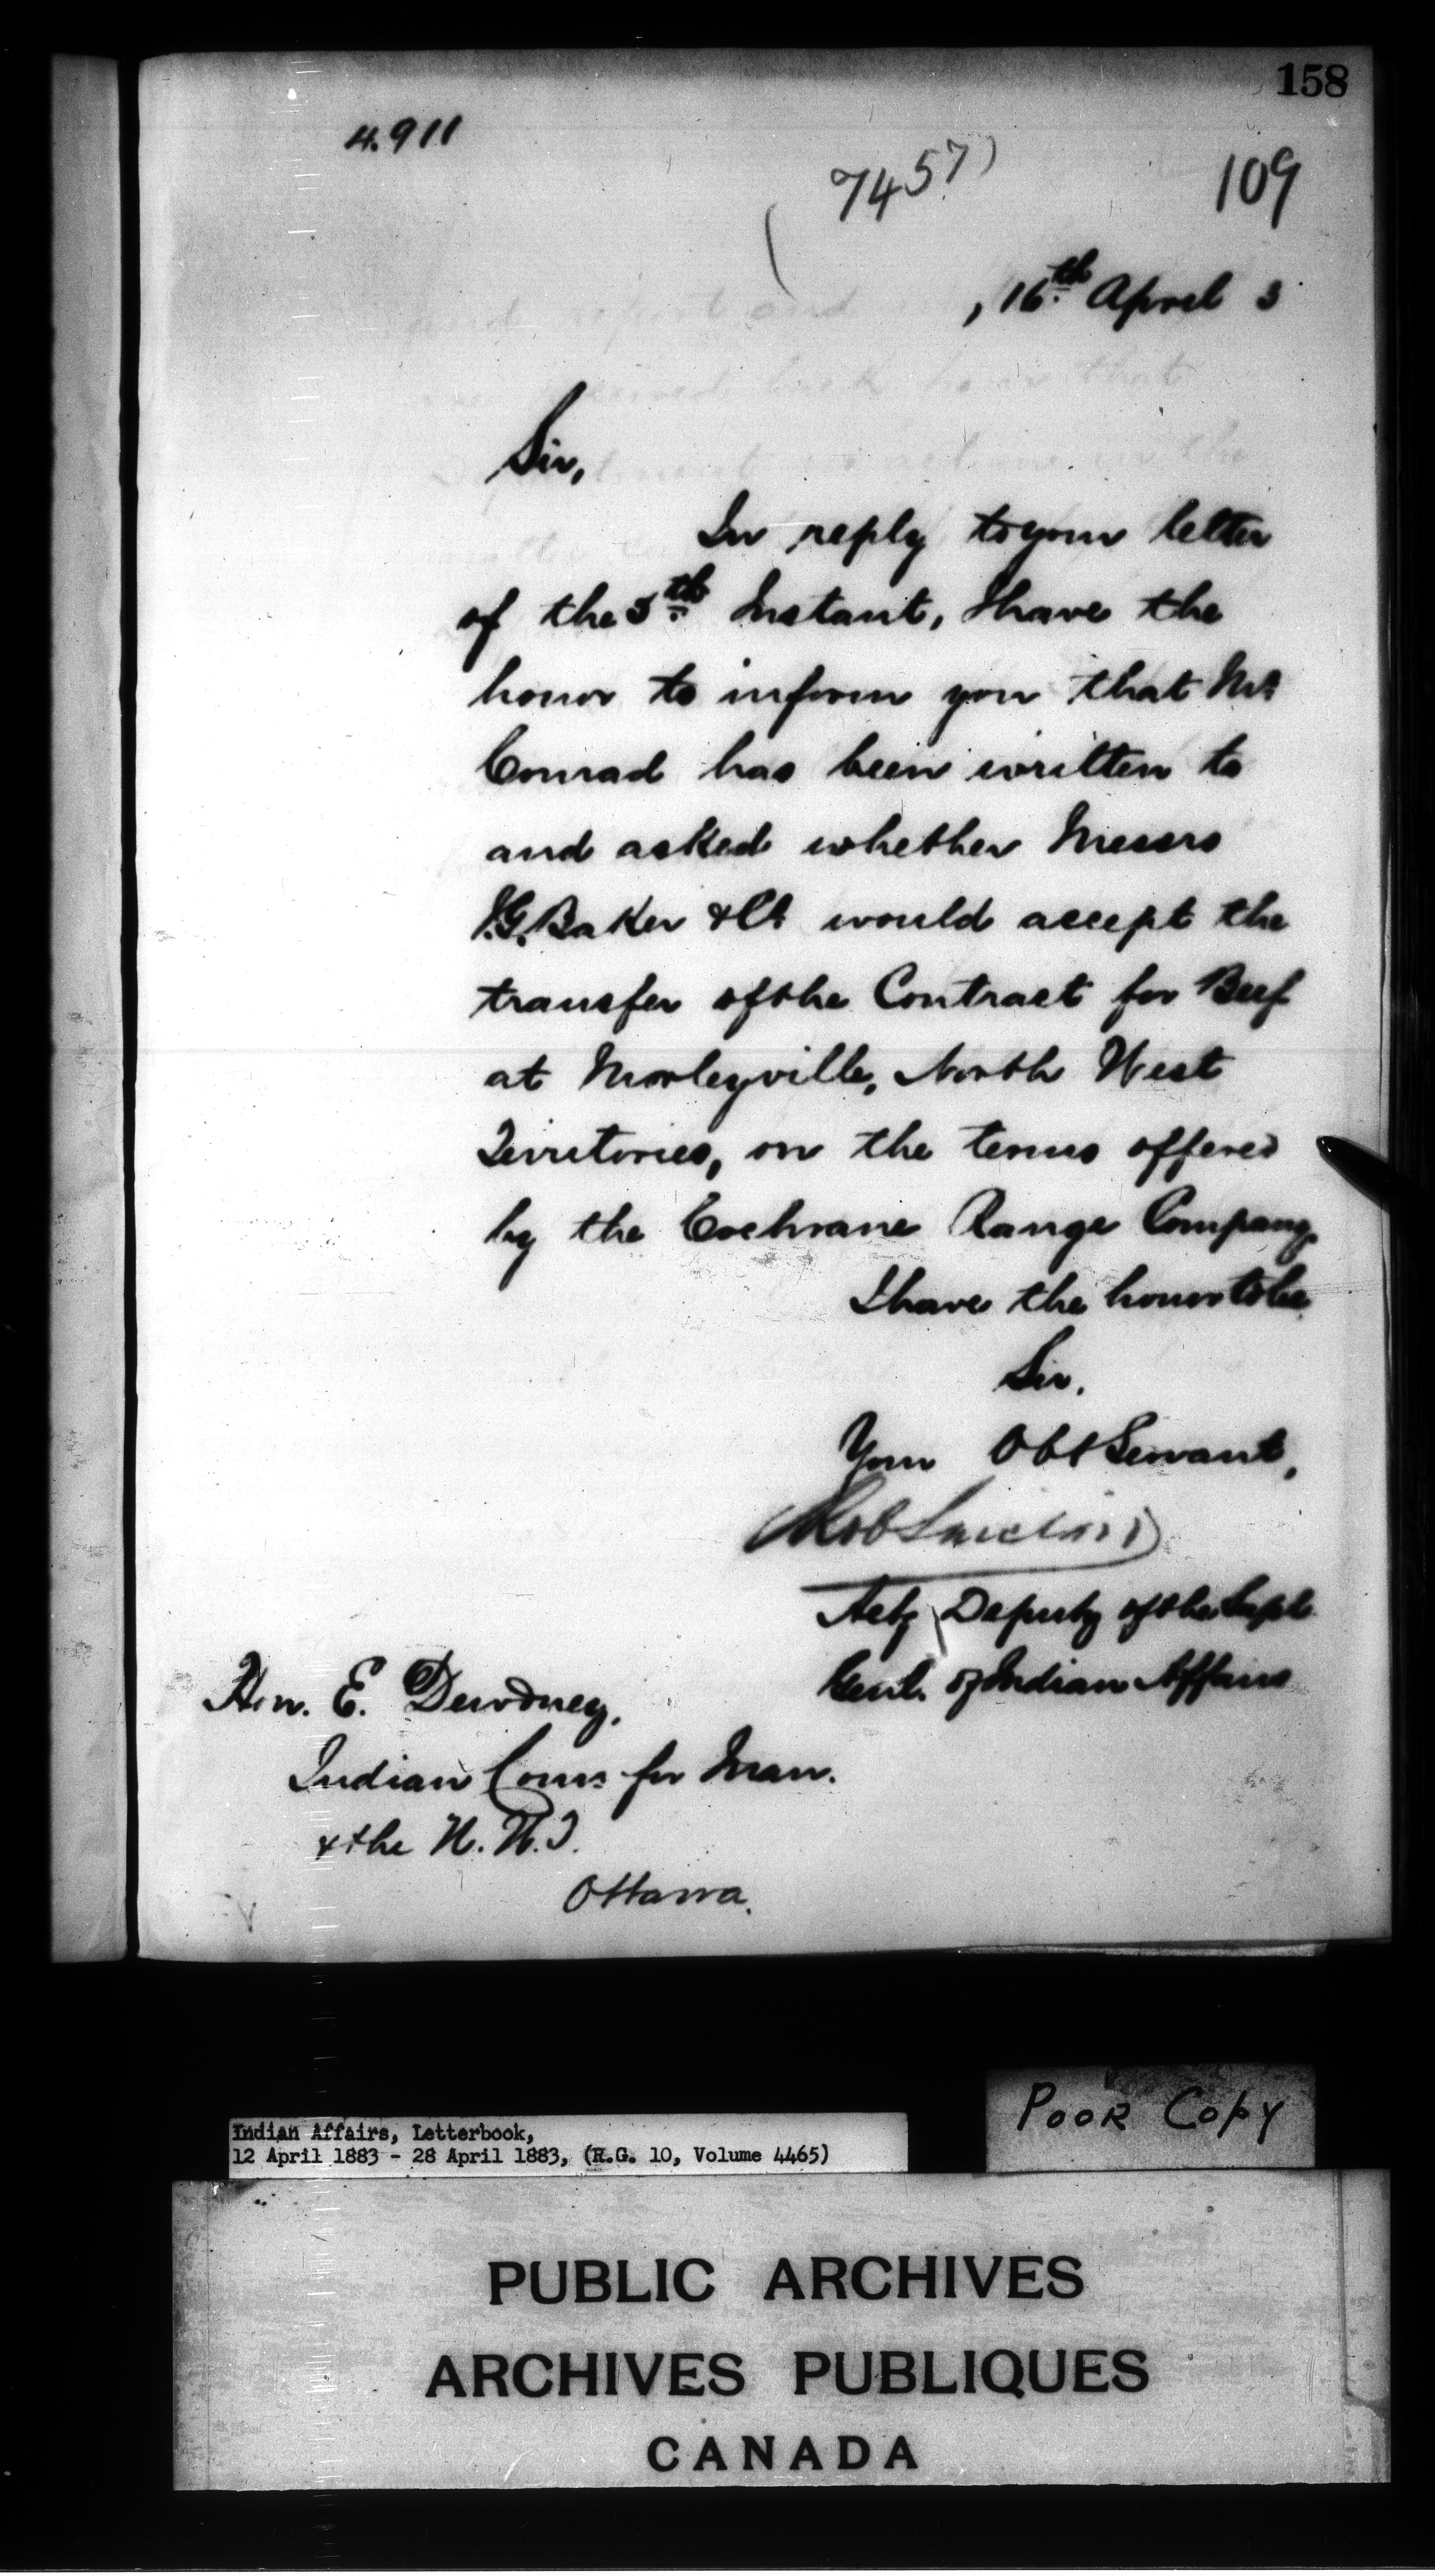 158
4.911
7457)
109
, 16th April 3
Sir,
In reply to your letter
of the 5th Instant, I have the
honor to inform you that Mr
Conrad has been written to
and asked whether Messrs
I.G. Baker & Co would accept the
transfer of the Contract for Beef
at Morleyville, North West
Territories, on the terms offered
by the Cochrane Range Company.
I have the honor to be
Sir,
Your Obt Servant,
Rob Sinclair
Actg Deputy of the Supt
Genl. of Indian Affairs
Hon. E. Dewdney,
Indian Comr for Man.
& the N.W.T.
Ottawa.
Poor Copy
Indian Affairs, Letterbook,
12 April 1883 - 28 April 1883, (R.G. 10, Volume 4465)
PUBLIC ARCHIVES
ARCHIVES PUBLIQUES
CANADA